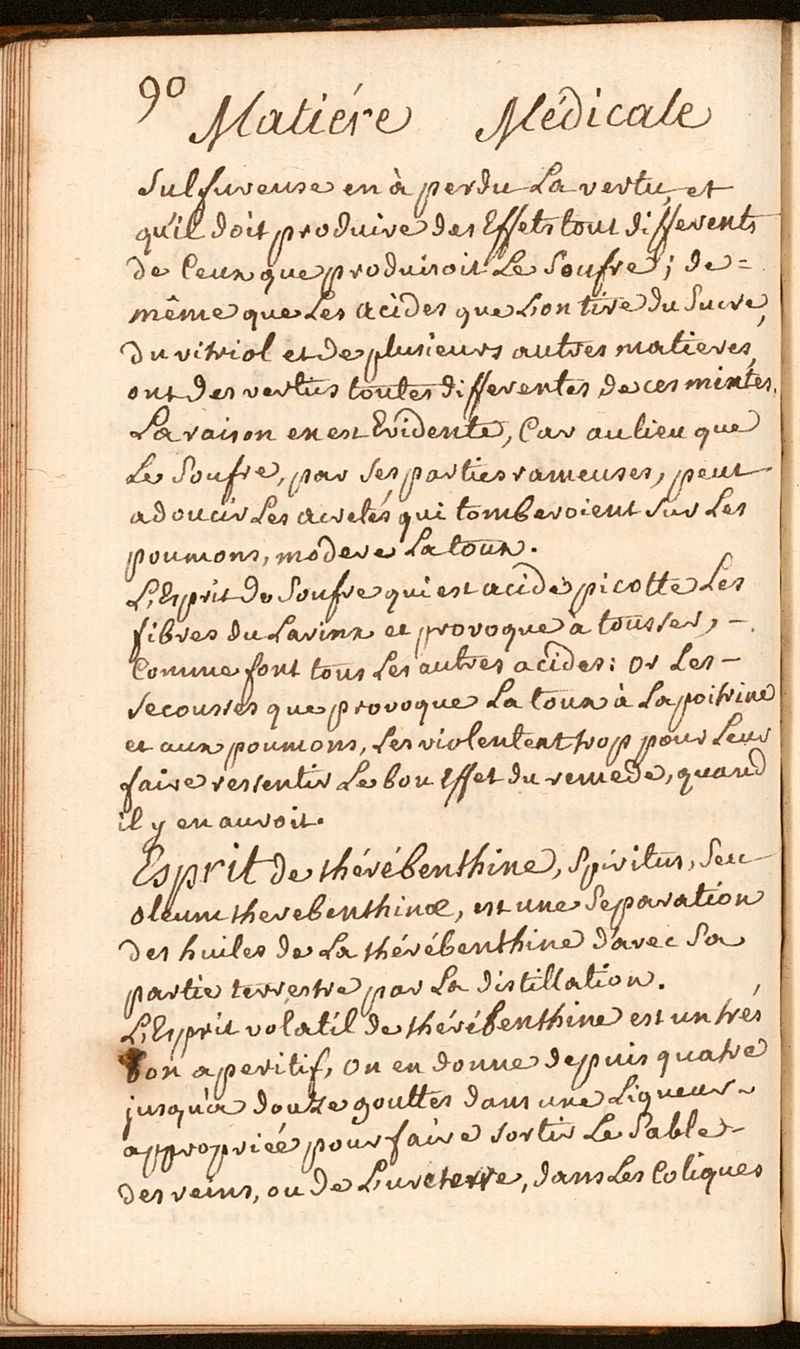 90
Matiére Médicale
Sulfureuse en à perdu La vertu, et
qu'il doit produire des Effets tout differents
de Ceux que produisoit Le Soufre; de=
même que Les acides que L'on tire du Sucre,
du vitriol et de plusieurs autres matieres,
ont des vertus toutes differentes de ces mixtes.
La raison en est Evidente, Car au lieu que
Le Soufre, par Ses parties rameuses, peut
adoucir Les acretés qui tomberoient Sur Les
poumons, modere La toux.
L'Esprit de Soufre qui est acide picotte Les
fibres du Larinx et provoque a tousser, -
Comme font tous Les autres acides: Or Les -
Secousses que provoque La toux à La poitrine
et aux poumons, Les violentent trop pour Leur
faire ressentir Le bon Effet du remede, quand
il y en auroit.
Esprit de thérébenthine, Spiritus, Seu
oleum therebenthinæ, est une Separation
des huiles de La thérébenthine d'avec Sa
partie terrestre par La distillation.
L'Esprit volatil de thérébenthine est un trés
bon aperitif, On en donne depuis quatre
jusqu'a douze gouttes dans une Liqueur ~
appropriéé pour faire Sortir Le Sable -
des reins, ou de L'ureterre, dans Les Coliques